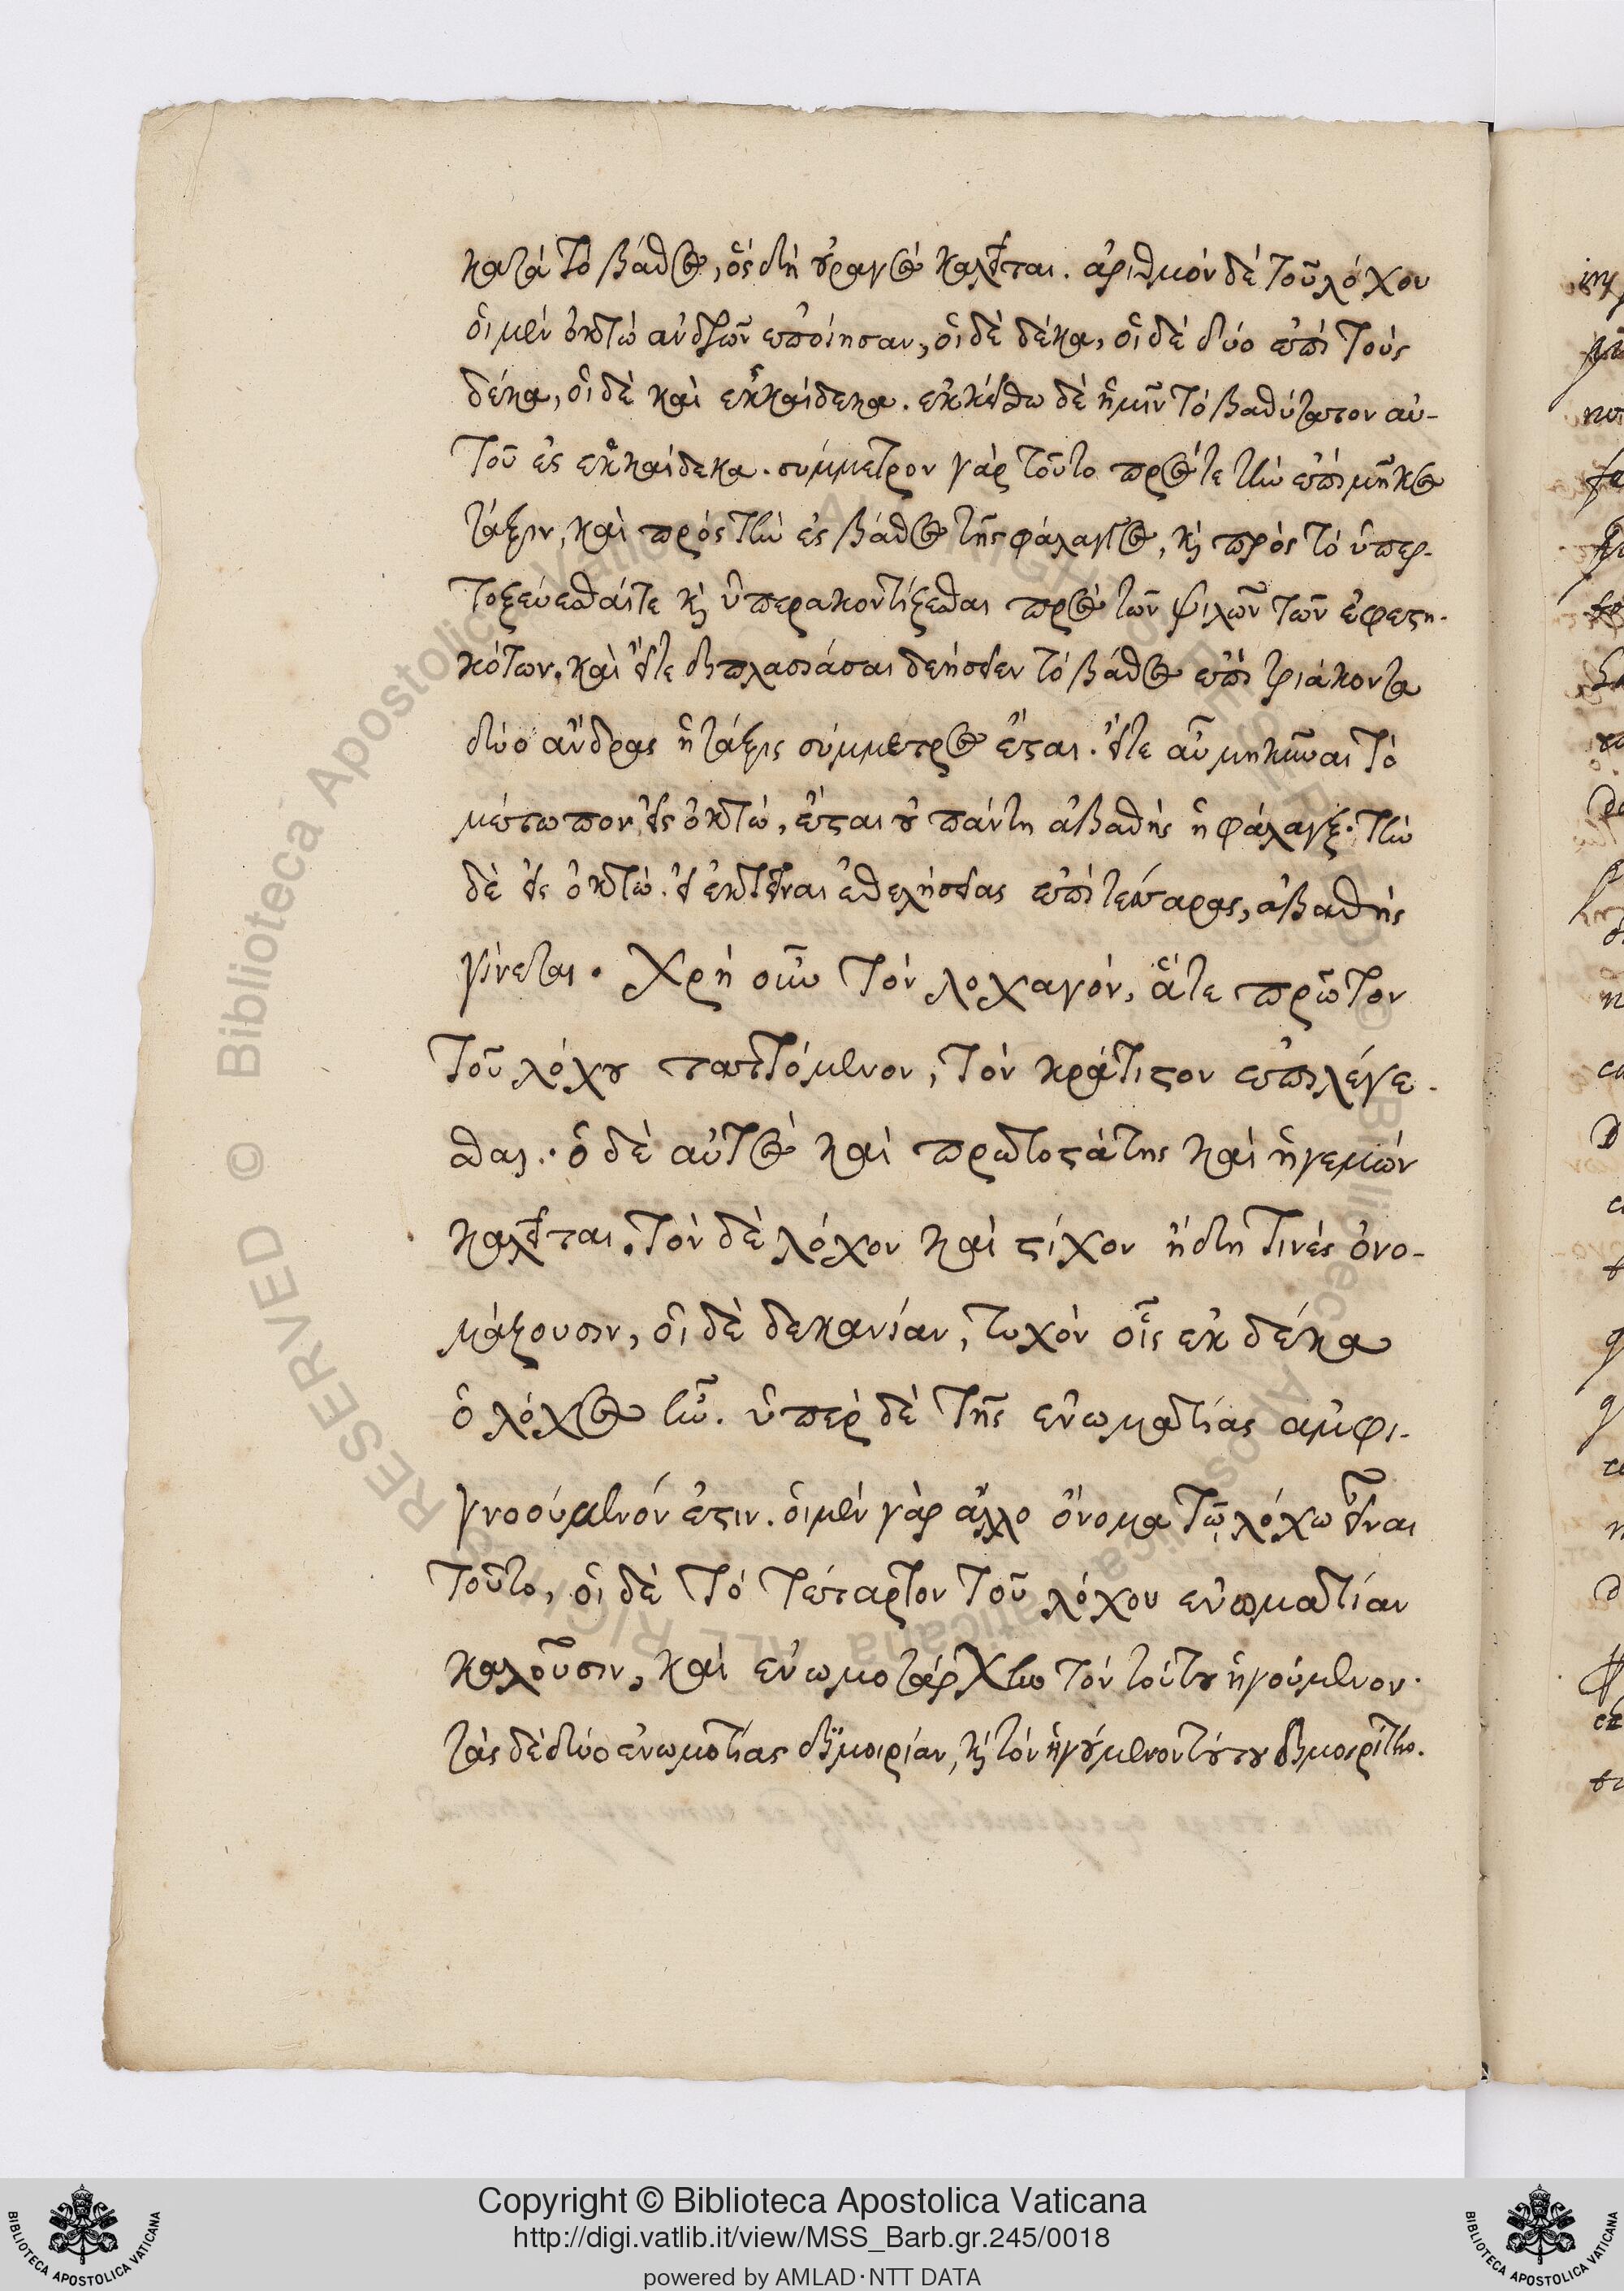 κατὰ τὸ βάθος, ὃς δὴ οὐραγὸς καλεῖται. ἀριθμὸν δὲ τοῦ λόχου
οἱ μὲν ὀκτὼ ἀνδρῶν ἐποίησαν, οἱ δὲ δέκα, οἱ δὲ δύο ἐπὶ τοὺς
δέκα, οἱ δὲ καὶ ἑκκαίδεκα. ἐκκείσθω δὲ ἡμῖν τὸ βαθύτατον αὐ-
τοῦ ἐς ἑκκαίδεκα. σύμμετρον γὰρ τοῦτο πρός τε τὴν ἐπὶ μῆκος
τάξιν, καὶ πρὸς τὴν ἐς βάθος τῆς φάλαγγος, καὶ πρὸς τὸ ὑπερ-
τοξεύεσθαί τε καὶ ὑπερακοντίζεσθαι πρὸς τῶν ψιλῶν τῶν ἐφεστη-
κότων. καὶ εἴτε διπλασιάσαι δεήσειεν τὸ βάθος ἐπὶ τριάκοντα
δύο ἄνδρας ἡ τάξις σύμμετρος ἔσται. εἴτε αὖ μηκῦναι τὸ
μέτωπον εἰς ὀκτώ, ἔσται οὐ πάντη ἀβαθὴς ἡ φάλαγξ. τὴν
δὲ εἰς ὀκτώ. εἰ ἐκτεῖναι ἐθελήσειας ἐπὶ τέσσαρας, ἀβαθὴς
γίνεται. Χρὴ οὖν τὸν λοχαγόν, ἅτε πρῶτον
τοῦ λόχου ταττόμενον, τὸν κράτιστον ἐπιλέγε-
σθαι. ὁ δὲ αὐτὸς καὶ πρωτοστάτης καὶ ἡγεμὼν
καλεῖται. τὸν δὲ λόχον καὶ στίχον ἤδη τινὲς ὀνο-
μάζουσιν, οἱ δὲ δεκανίαν, τυχὸν οἷς ἐκ δέκα
ὁ λόχος ἦν. ὑπὲρ δὲ τῆς ἐνωματίας ἀμφι-
γνοούμενόν ἐστιν. οἱ μὲν γὰρ ἄλλο ὄνομα τῷ λόχῳ εἶναι
τοῦτο, οἱ δὲ τὸ τέταρτον τοῦ λόχου ἐνωματίαν
καλοῦσιν, καὶ ἐνωμοτάρχην τὸν τούτου ἡγούμενον.
τὰς δὲ δύο ἐνωμοτίας διμοιρίαν, καὶ τὸν ἡγούμενον τούτου διμοιρίτην.
Copyright © Biblioteca Apostolica Vaticana
http://digi.vatlib.it/view/MSS_Barb.gr.245/0018
powered by AMLAD·NTT DATA